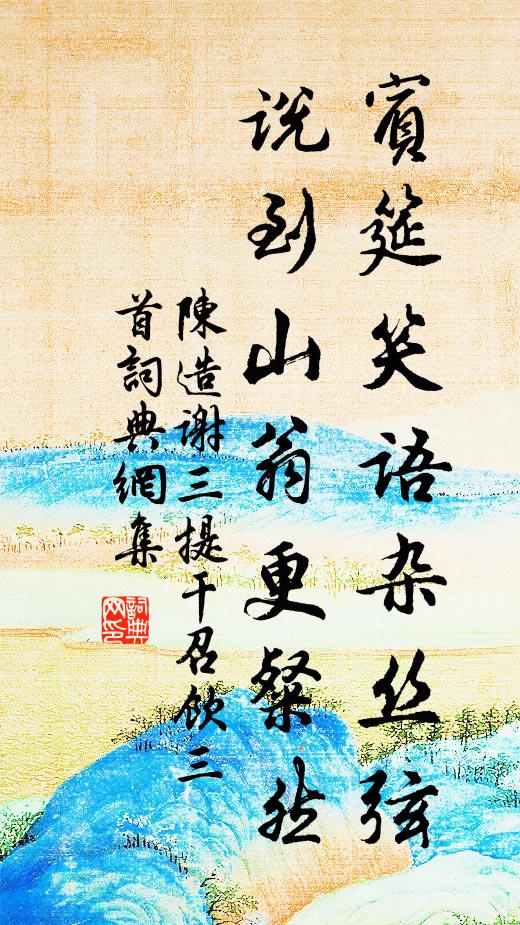 賓筵笑語杂丝弦
说到山翁更粲然
陳造谢三提干召飲三
首詞典網集
詞典
网印